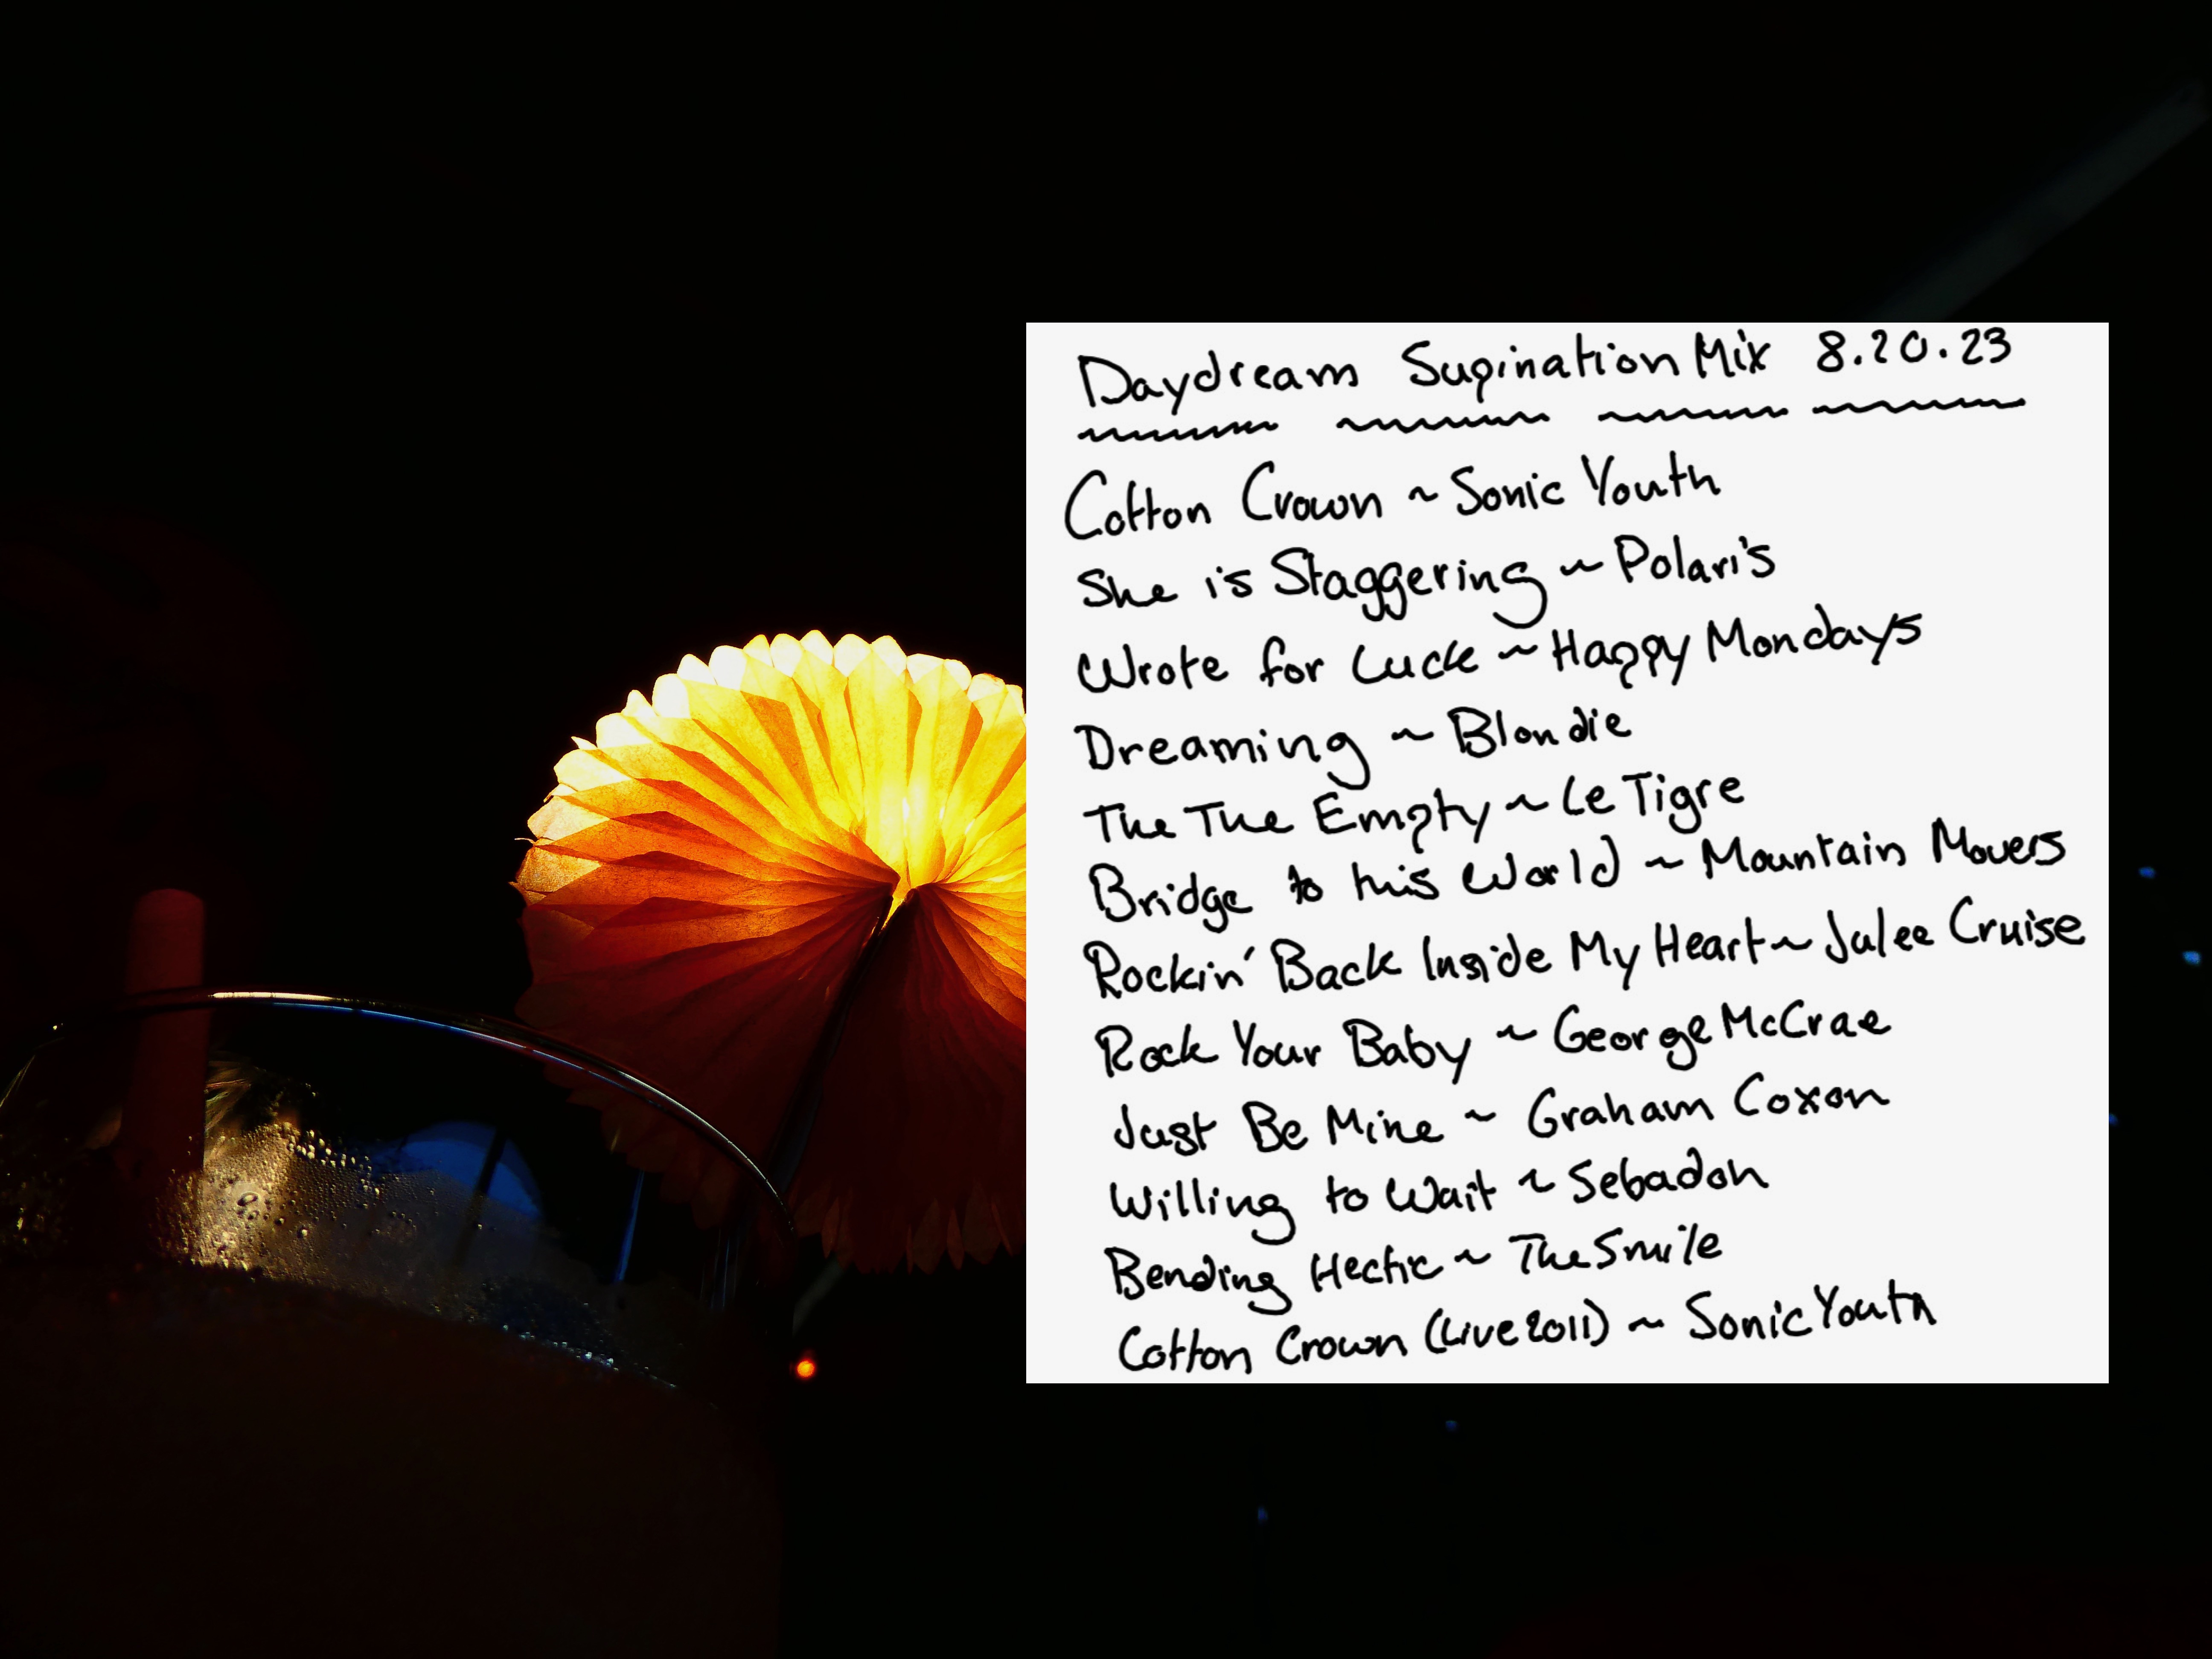 Daydream Supination Mix 8.20.23
Cotton Crown ~ Sonic Youth
She is Staggering ~ Polaris
Wrote for Luck ~ Happy Mondays
Dreaming ~ Blondie
The The Empty ~ Le Tigre
Bridge to this World ~ Mountain Movers
Rockin' Back Inside My Heart ~ Julee Cruise
Rock Your Baby ~ George McCrae
Just Be Mine ~ Graham Coxon
Willing to Wait ~ Sebadoh
Bending Hectic ~ The Smile
Cotton Crown (Live 2011) ~ Sonic Youth